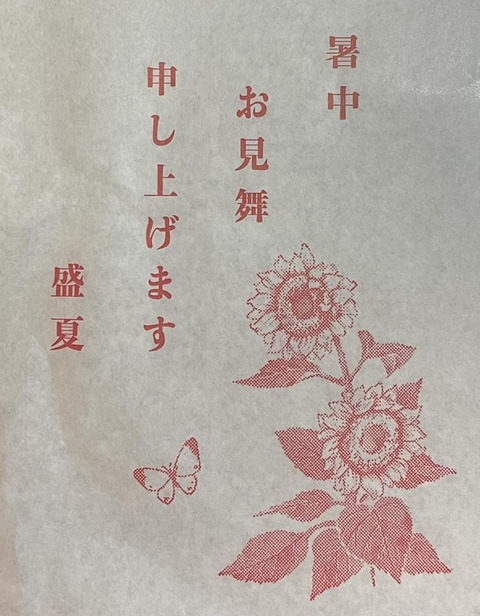 暑中
お見舞
申し上げます
盛夏